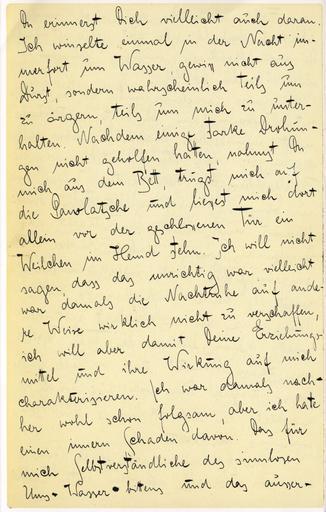 Du erinnerst Dich vielleicht auch daran.
Ich winselte einmal in der Nacht im-
merfort um Wasser, gewiss nicht aus
Durst, sondern wahrscheinlich teils um
zu ärgern, teils um mich zu unter-
halten. Nachdem einige starke Drohun-
gen nicht geholfen hatten, nahmst Du
mich aus dem Bett, trugst mich auf
die Pawlatsche und liessest mich dort
allein vor der geschlossenen Tür ein
Weilchen im Hemd stehn. Ich will nicht
sagen, dass das unrichtig war, vielleicht
war damals die Nachtruhe auf ande-
re Weise wirklich nicht zu verschaffen,
ich will aber damit Deine Erziehungs-
mittel und ihre Wirkung auf mich
charakterisieren. Ich war damals nach-
her wohl schon folgsam, aber ich hatte
einen innern Schaden davon. Das für
mich Selbstverständliche des sinnlosen
Ums-Wasser-bittens und das ausser-